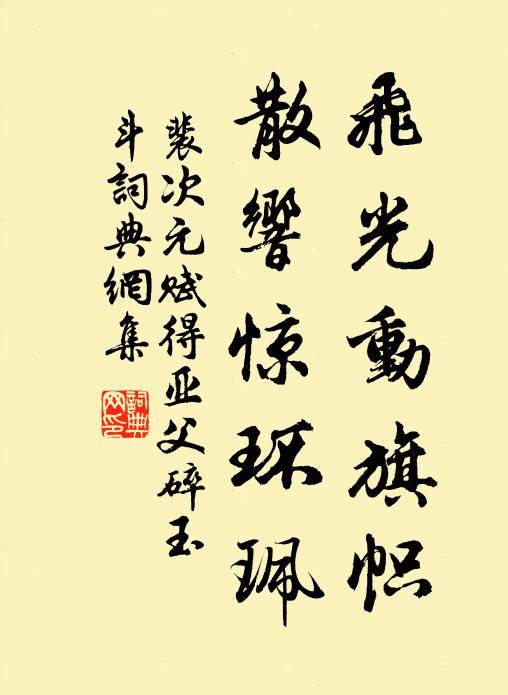 飛光動旗帜
散響惊环珮
裴次元赋得亚父碎玉
斗詞典網集
詞典網印